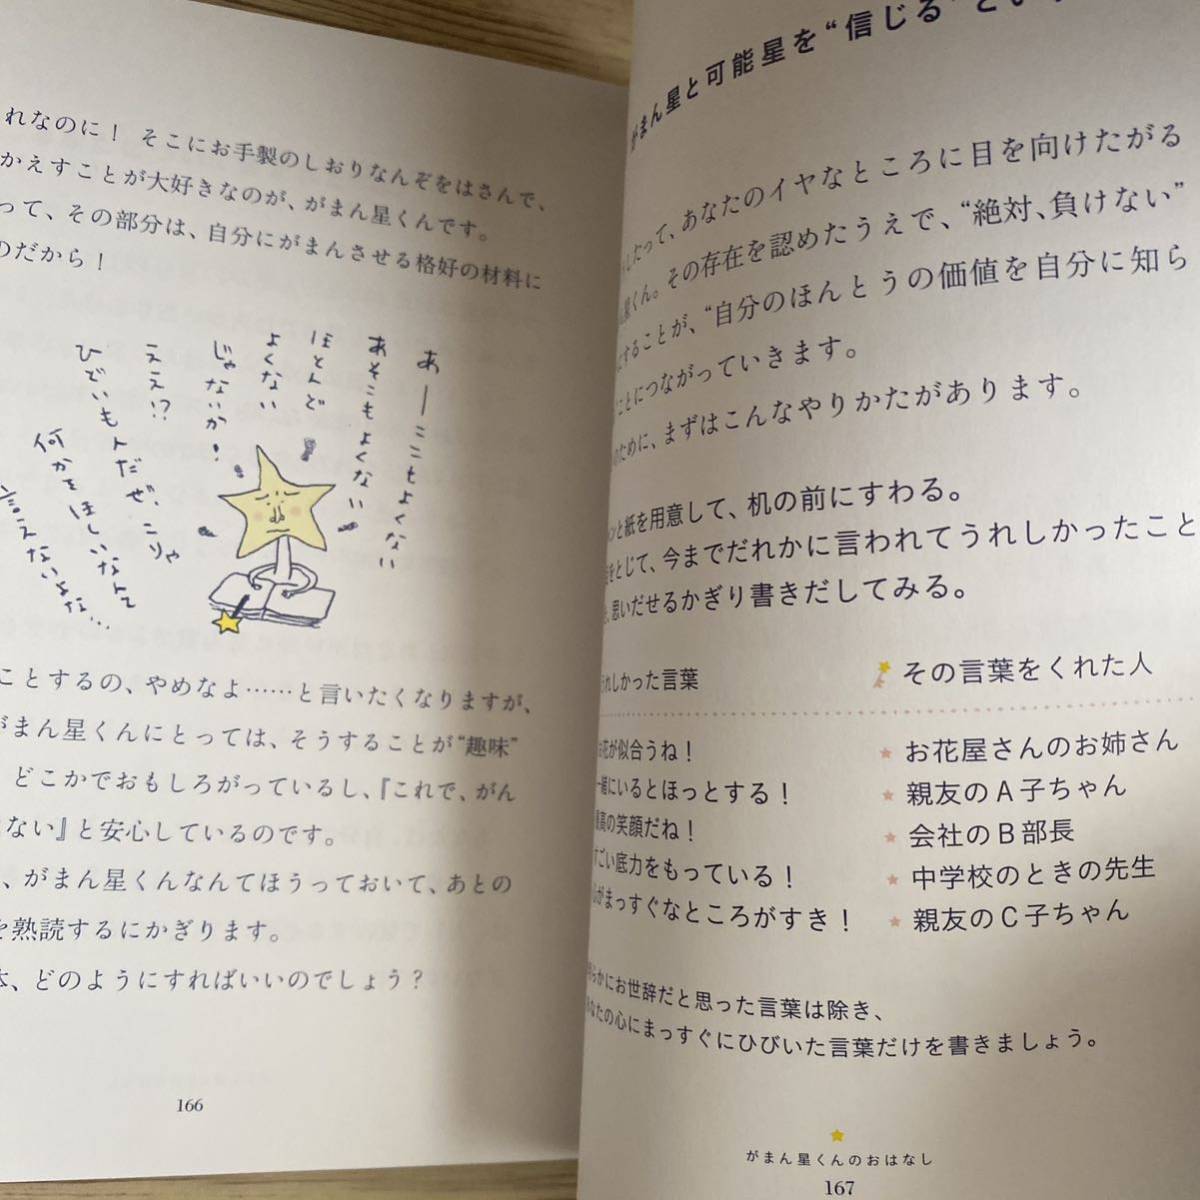 れなのに！ そこにお手製のしおりなんぞをはさんで、
かえすことが大好きなのが、がまん星くんです。
って、その部分は、自分にがまんさせる格好の材料に
のだから！
あーここもよくない
あそこもよくない
ほとんど
よくない
じゃないか！
ええ!?
ひどいもんだぜ、こりゃ
何かをほしいなんて
言えないよな…
ことするの、やめなよ……と言いたくなりますが、
がまん星くんにとっては、そうすることが“趣味”
どこかでおもしろがっているし、『これで、がん
ない』と安心しているのです。
、がまん星くんなんてほうっておいて、あとの
を熟読するにかぎります。
、どのようにすればいいのでしょう？
166
がまん星と可能星を“信じる”とい
だって、あなたのイヤなところに目を向けたがる
星くん。その存在を認めたうえで、“絶対、負けない”
することが、“自分のほんとうの価値を自分に知ら
ことにつながっていきます。
のために、まずはこんなやりかたがあります。
ンと紙を用意して、机の前にすわる。
をとじて、今までだれかに言われてうれしかったこと
、思いだせるかぎり書きだしてみる。
うれしかった言葉
その言葉をくれた人
お花が似合うね！
お花屋さんのお姉さん
一緒にいるとほっとする！
親友のA子ちゃん
最高の笑顔だね！
会社のB部長
すごい底力をもっている！
中学校のときの先生
心がまっすぐなところがすき！
親友のC子ちゃん
らかにお世辞だと思った言葉は除き、
あなたの心にまっすぐにひびいた言葉だけを書きましょう。
がまん星くんのおはなし
167